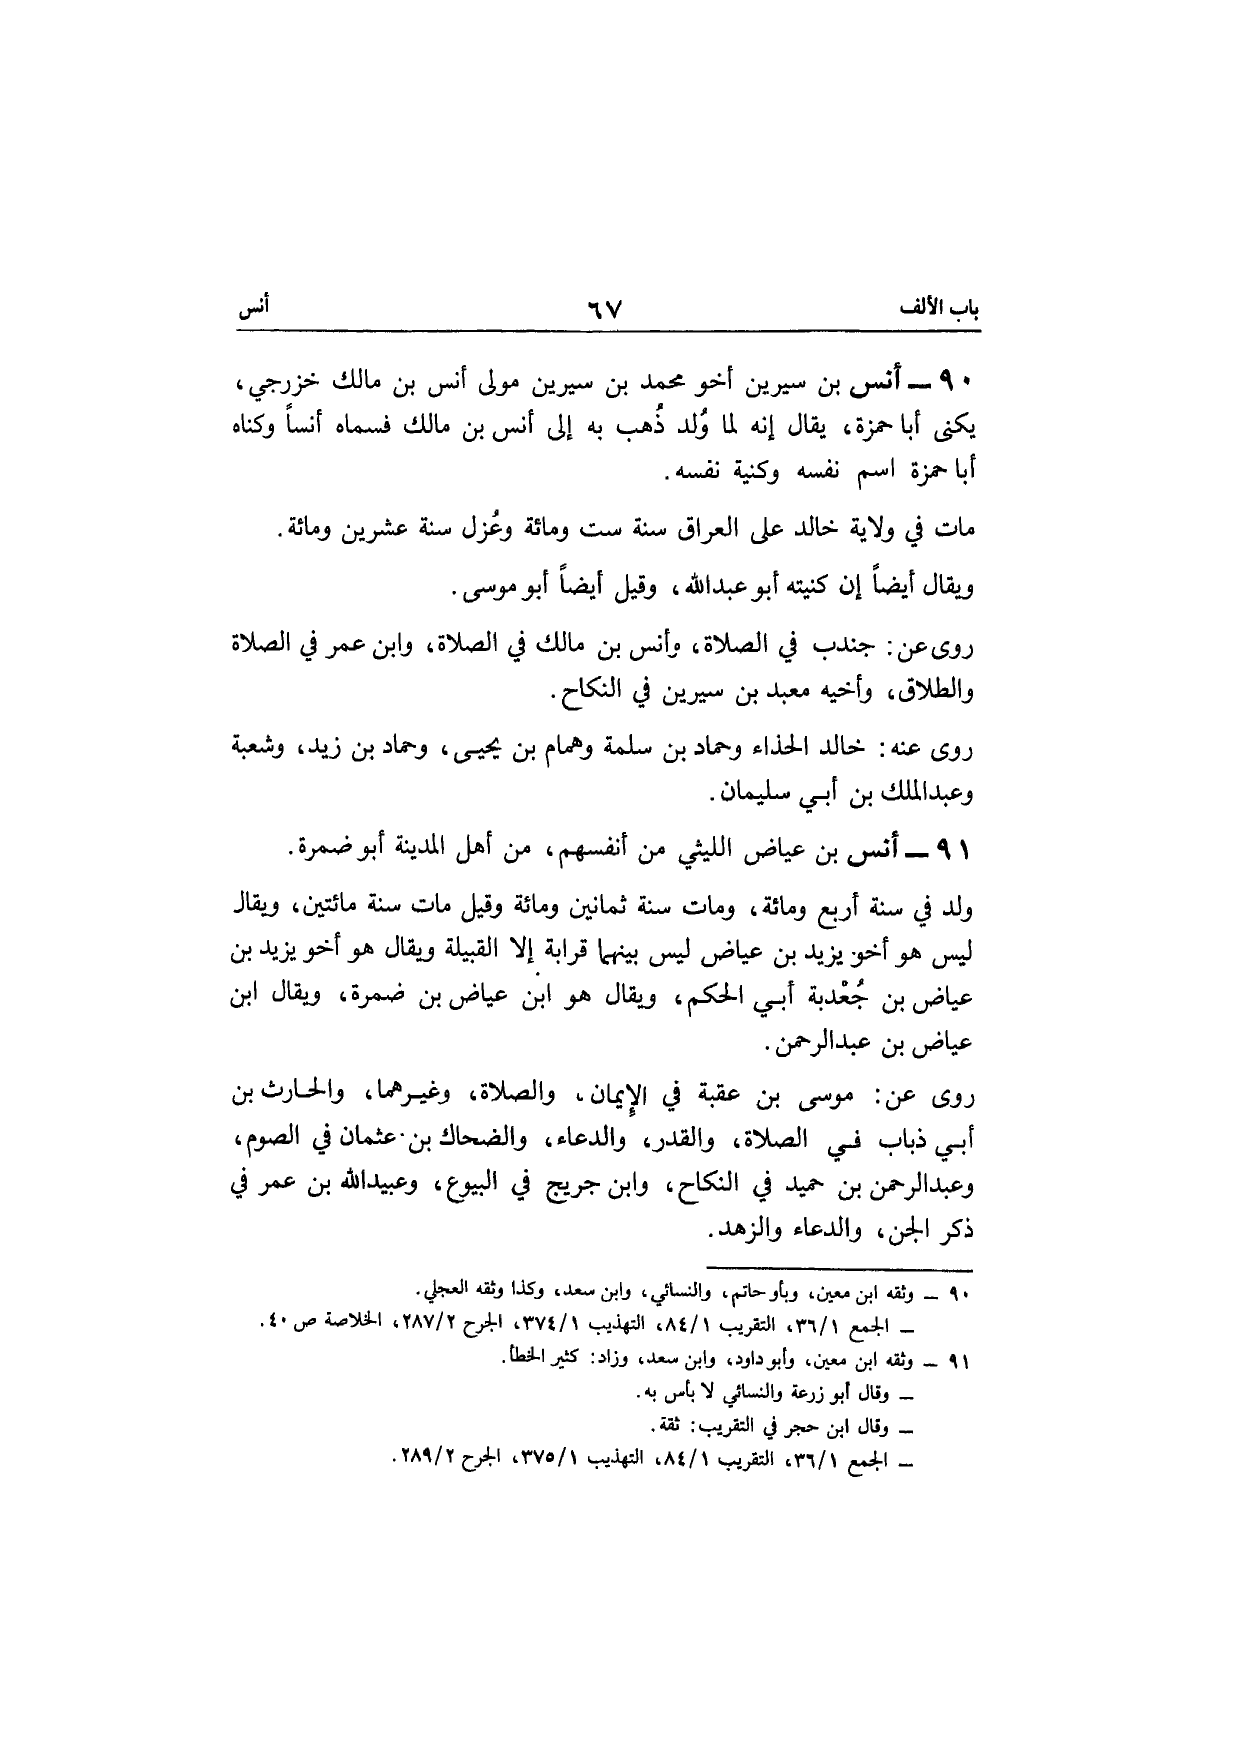 باب الألف ٦٧ أنس
٩٠ ــ أنس بن سيرين أخو محمد بن سيرين مولى أنس بن مالك خزرجي،
يكنى أبا حمزة، يقال إنه لما وُلد ذُهب به إلى أنس بن مالك فسماه أنساً وكناه
أبا حمزة اسم نفسه وكنية نفسه.
مات في ولاية خالد على العراق سنة ست ومائة وعُزل سنة عشرين ومائة.
ويقال أيضاً إن كنيته أبو عبدالله، وقيل أيضاً أبو موسى.
روى عن: جندب في الصلاة، وأنس بن مالك في الصلاة، وابن عمر في الصلاة
والطلاق، وأخيه معبد بن سيرين في النكاح.
روى عنه: خالد الحذاء وحماد بن سلمة وهمام بن يحيى، وحماد بن زيد، وشعبة
وعبدالملك بن أبي سليمان.
٩١ ــ أنس بن عياض الليثي من أنفسهم، من أهل المدينة أبو ضمرة.
ولد في سنة أربع ومائة، ومات سنة ثمانين ومائة وقيل مات سنة مائتين، ويقال
ليس هو أخو يزيد بن عياض ليس بينهما قرابة إلا القبيلة ويقال هو أخو يزيد بن
عياض بن جُعْدبة أبي الحكم، ويقال هو ابن عياض بن ضمرة، ويقال ابن
عياض بن عبدالرحمن.
روى عن: موسى بن عقبة في الإيمان، والصلاة، وغيرهما، والحارث بن
أبي ذباب في الصلاة، والقدر، والدعاء، والضحاك بن عثمان في الصوم،
وعبدالرحمن بن حميد في النكاح، وابن جريج في البيوع، وعبيدالله بن عمر في
ذكر الجن، والدعاء والزهد.
٩٠ ــ وثقه ابن معين، وبأو حاتم، والنسائي، وابن سعد، وكذا وثقه العجلي.
ــ الجمع ٣٦/١، التقريب ٨٤/١، التهذيب ٣٧٤/١، الجرح ٢٨٧/٢، الخلاصة ص ٤٠.
٩١ ــ وثقه ابن معين، وأبو داود، وابن سعد، وزاد: كثير الخطأ.
ــ وقال أبو زرعة والنسائي لا بأس به.
ــ وقال ابن حجر في التقريب: ثقة.
ــ الجمع ٣٦/١، التقريب ٨٤/١، التهذيب ٣٧٥/١، الجرح ٢٨٩/٢.